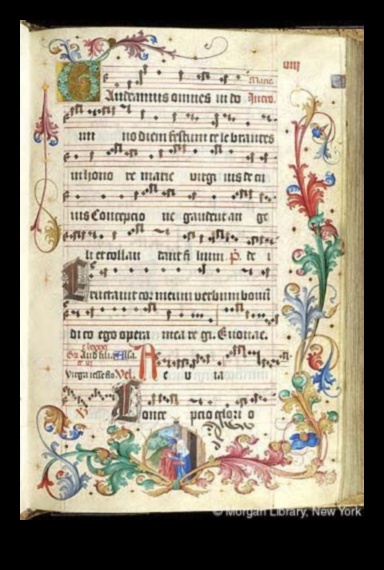 Gaudeamus omnes in do
diem festum ce le brantes
in hono re marie virgi nis de cu
ius Concepcio ne gaudent an ge
li et collau dant fi lium p̄. de i
Eructavit cor meum verbum bonū
di co ego opera mea re gi. Euouae.
A e u ia
Conce pcio glori o
© Morgan Library, New York